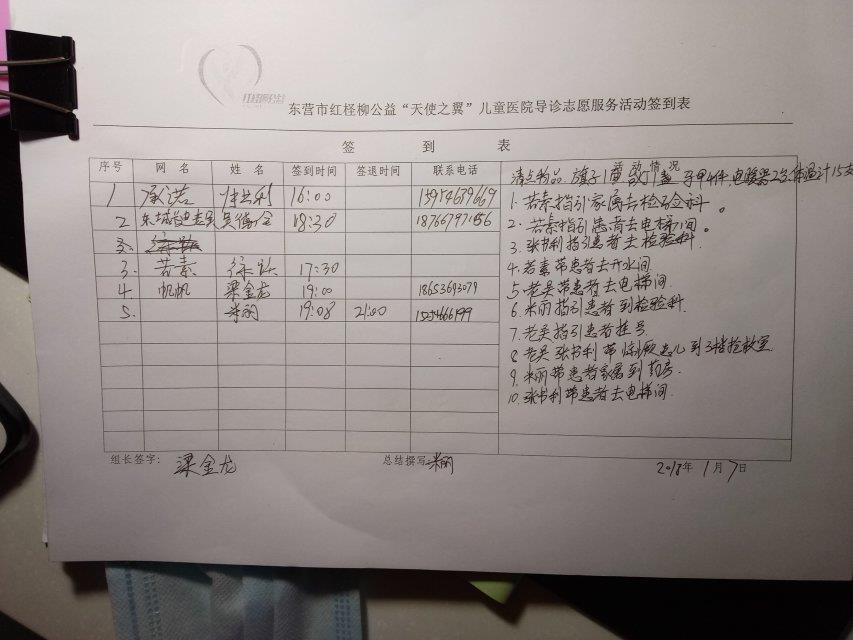 东营市红柽柳公益“天使之翼”儿童医院导诊志愿服务活动签到表
签 到 表
序号 网 名 姓 名 签到时间 签退时间 联系电话 活动情况
清点物品 旗子1面 台灯1盏 马甲4件 电暖器2台 体温计15支
1 承诺 16:00
2 18:30 18766797156
3. 苦素 17:30
4. 帆帆 梁金龙 19:00 18653693079
5. 米丽 19:08 21:00
1. 苦素指引家属去检验科。
2. 苦素指引患者去电梯间。
3. 张书利指引患者去检验科.
4. 苦素带患者去开水间.
5. 老吴带患者去电梯间.
6. 米丽指引患者到检验科.
7. 老吴指引患者挂号.
8. 老吴 张书利 带惊厥患儿到3楼抢救室.
9. 米丽带患者家属到药房.
10. 张书利带患者去电梯间.
组长签字: 梁金龙 总结撰写 米丽 2018年 1月 7日